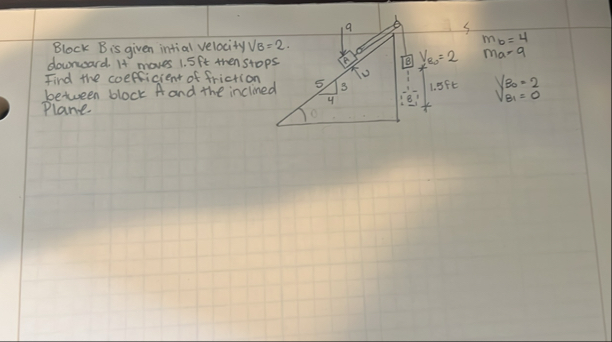 Block B is given intial velocity VB=2.
downward. It moves 1.5ft then stops
Find the coefficient of friction
between block A and the inclined
Plane.
9
A
N
5
3
4
B
VB₀=2
1.5ft
B
mb=4
ma=9
VB₀=2
VB1=0